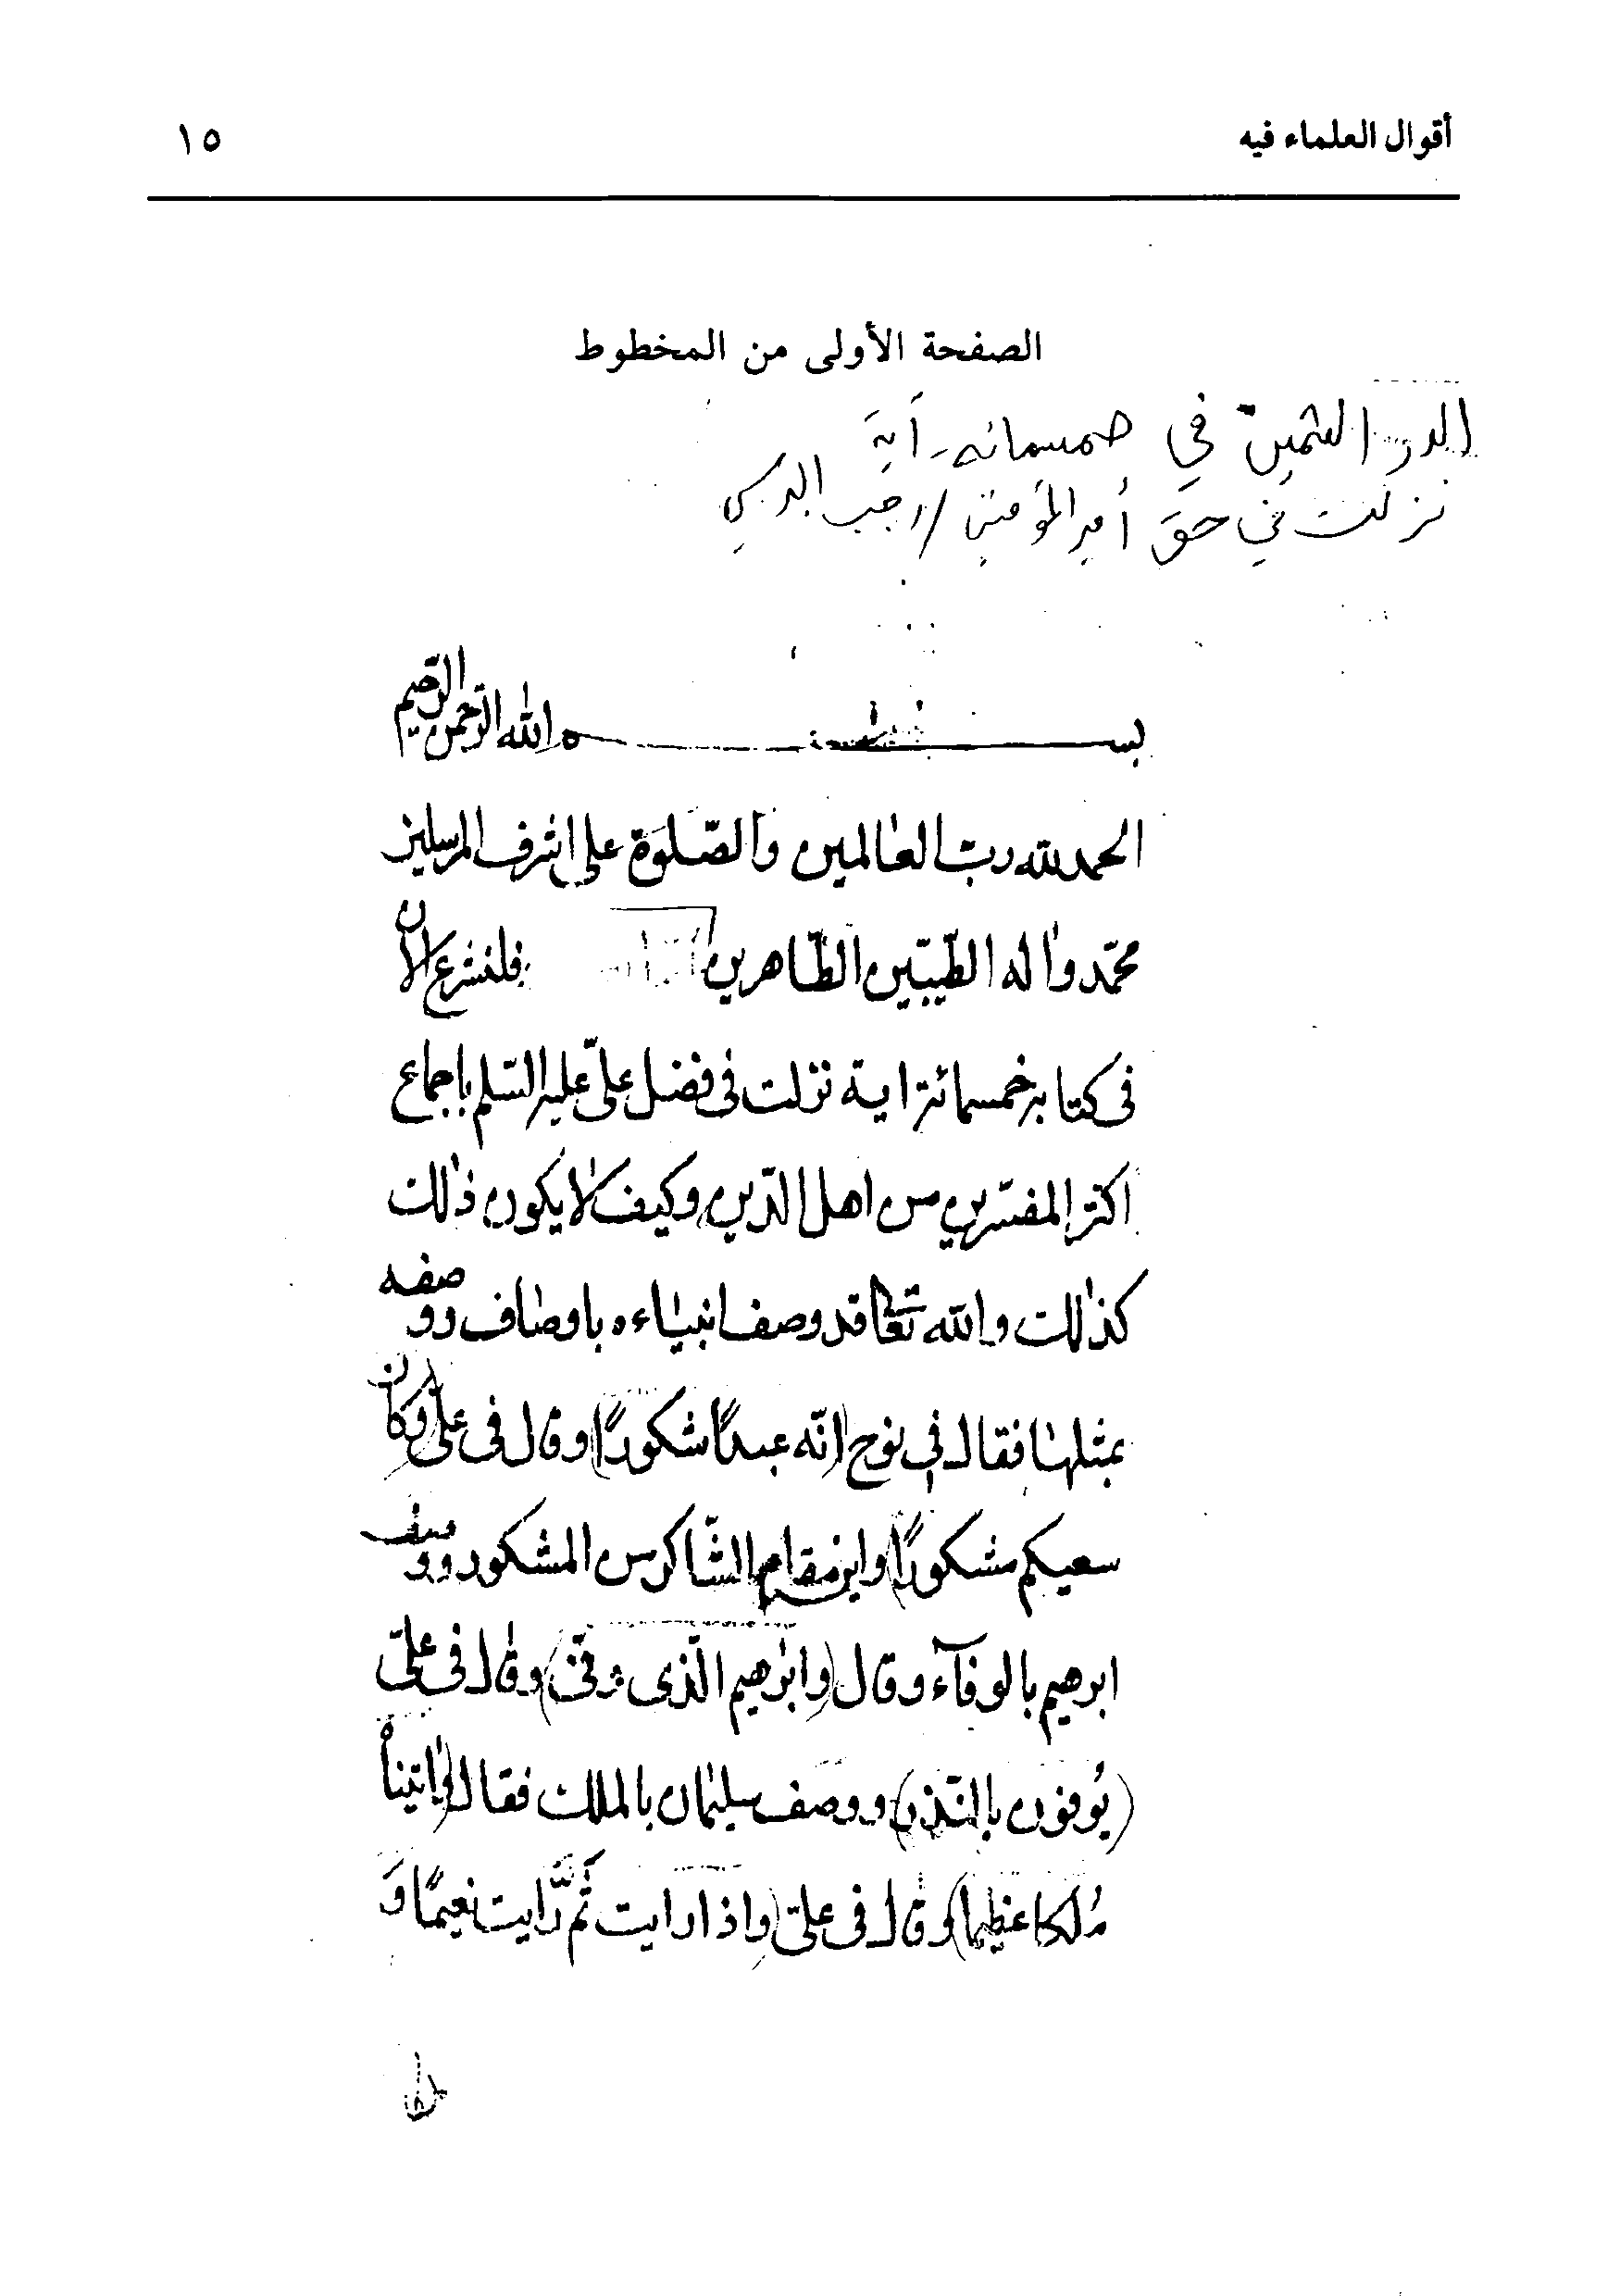 أقوال العلماء فيه
١٥
الصفحة الأولى من المخطوط
الدر الثمين في خمسمائه آية
نزلت في حق أمير المؤمنين / رجب البرسي
بسم الله الرحمن الرحيم
الحمد لله ربّ العالمين والصّلوة على اشرف المرسلين
محمّد واله الطيّبين الطّاهرين فلنشرع الان
فى كتابه خمسمائة اية نزلت فى فضل علىّ عليه السّلم باجماع
اكثر المفسّرين من اهل الدّين وكيف لا يكون ذلك
كذلك والله تعالى قد وصف انبياءه باوصاف ووصفه
بمثلها فقال في نوح (انّه عبدًا شكورًا) وقال فى علىّ (وكان
سعيكم مشكورًا) واين مقام الشّاكر من المشكور ووصف
ابرهيم بالوفآء وقال (وابرهيم الّذى وفّى) وقال فى علىّ
(يُوفون بالنّذر) ووصف سليمان بالملك فقال (واتيناه
مُلكا عظيما) وقال فى علىّ (واذا رايت ثَمّ رَّايت نعيمًا وَ